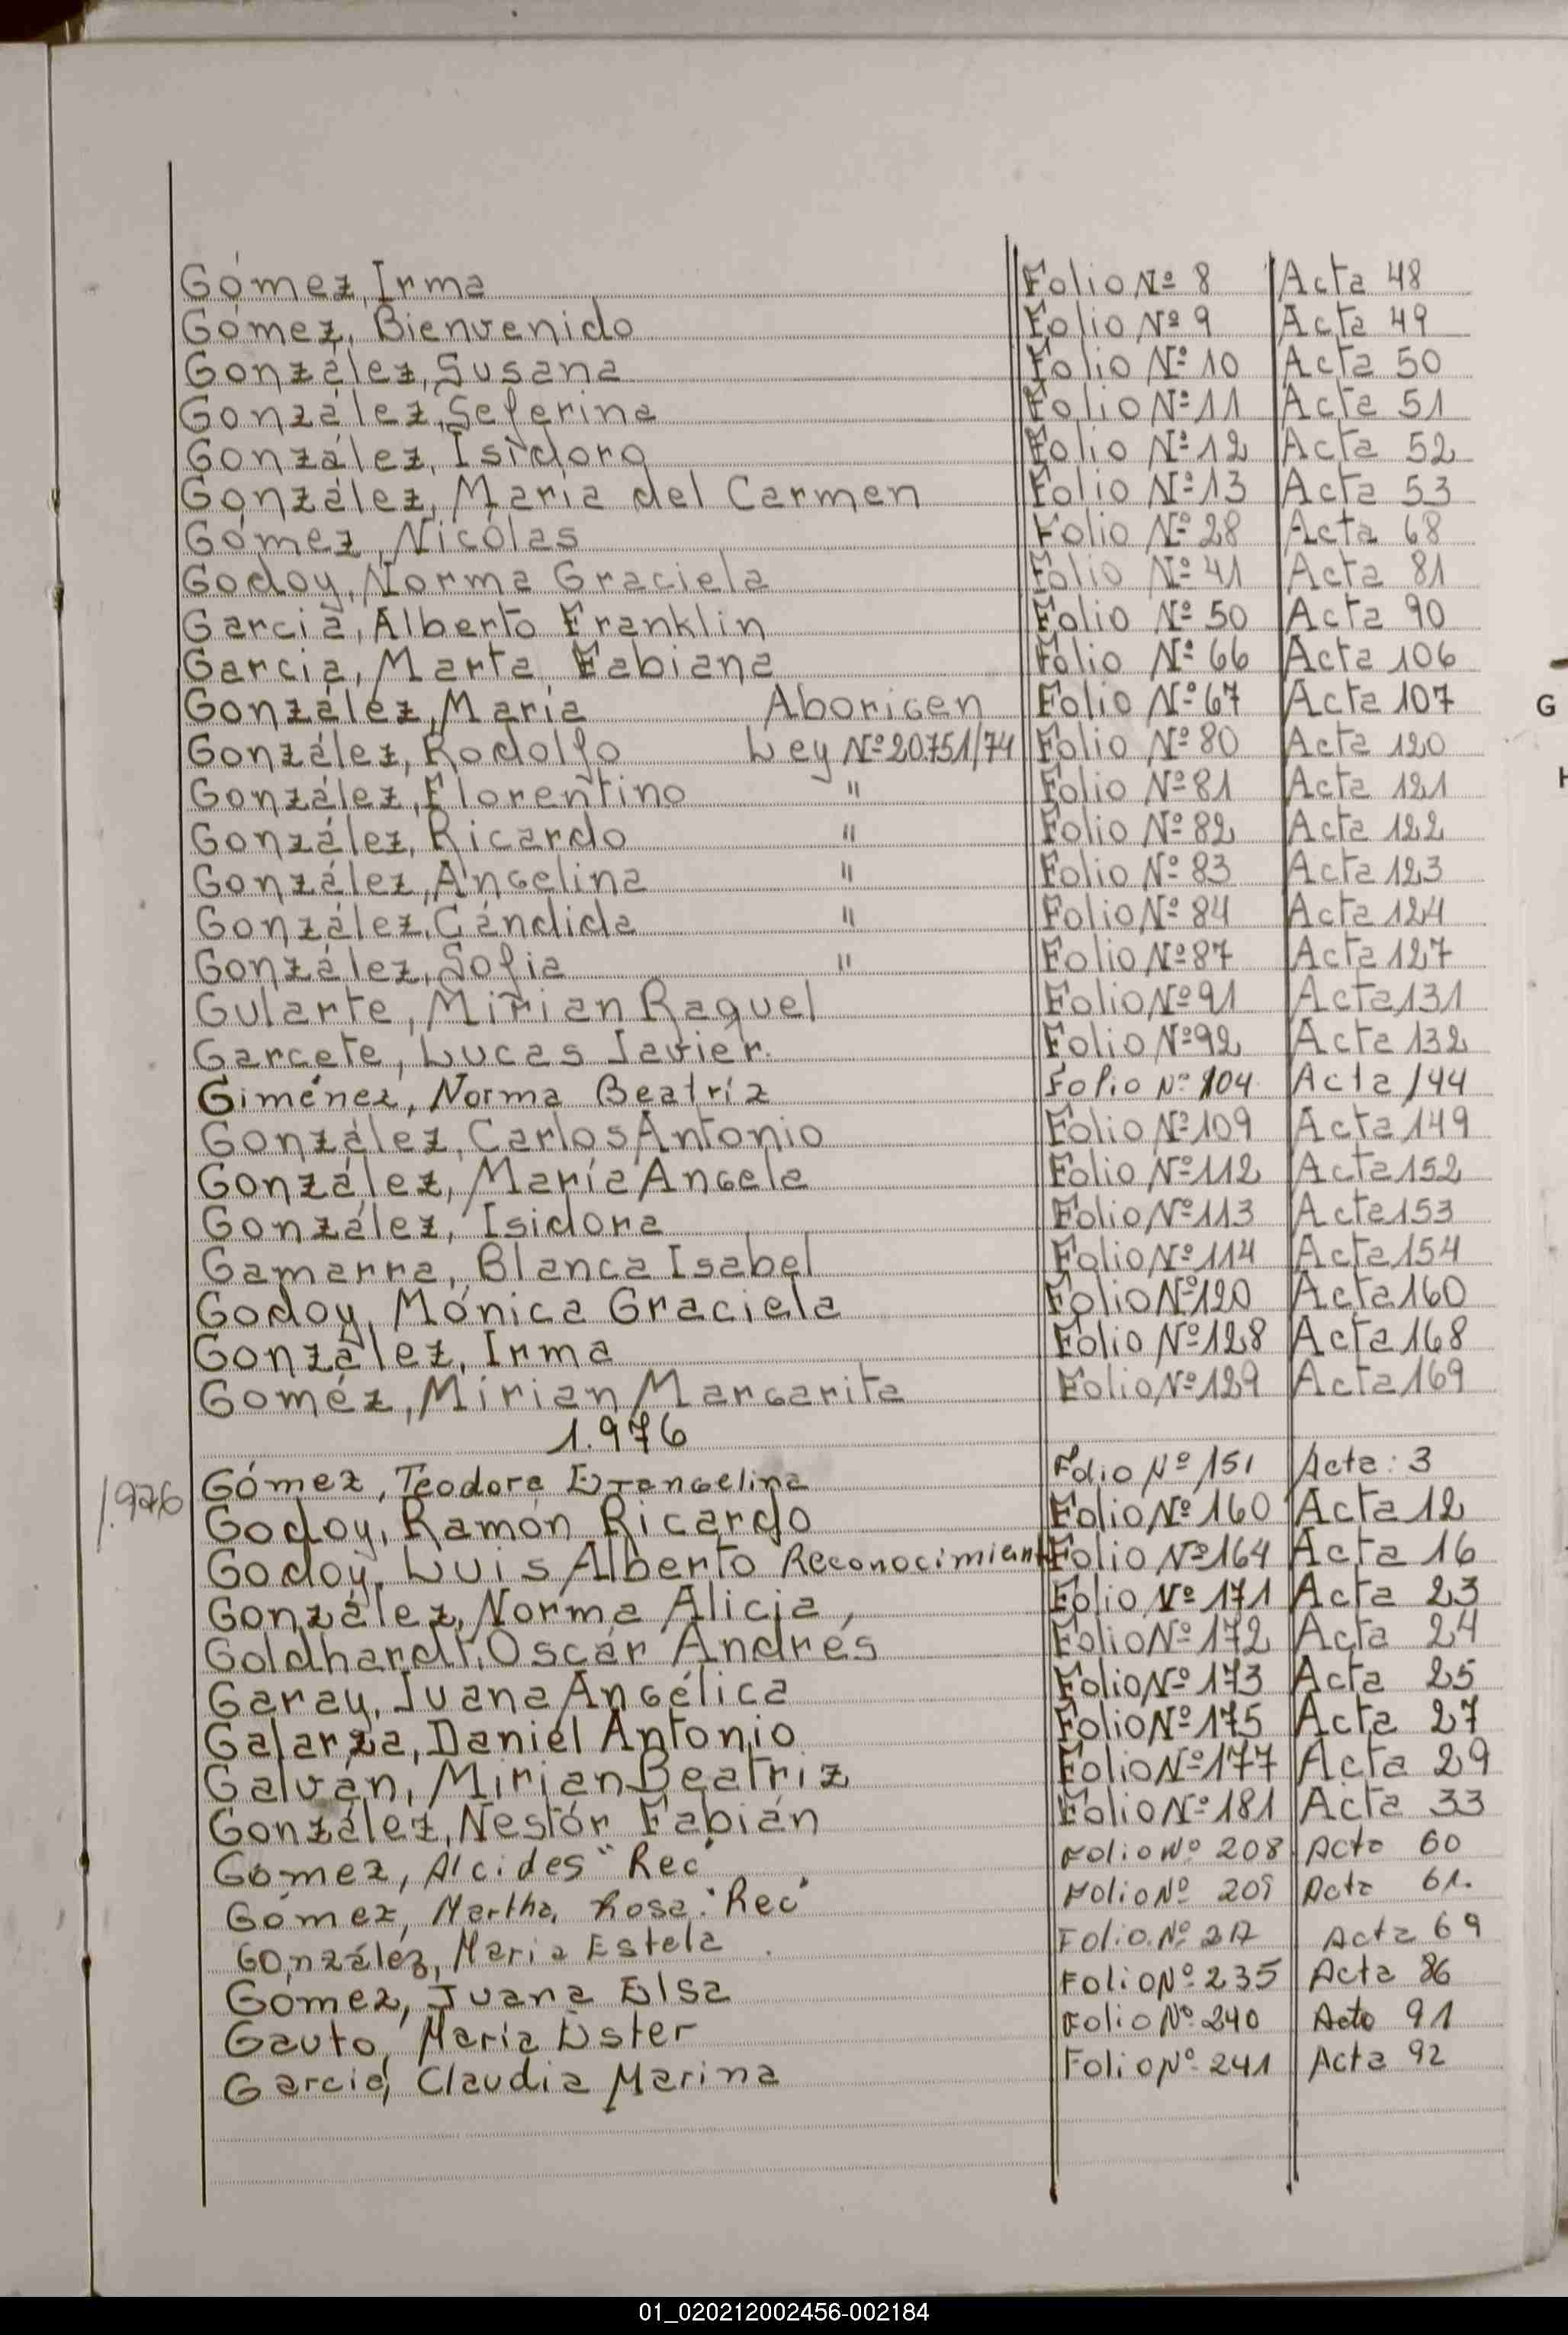 Gómez, Irma Folio Nº 8 Acta 48
Gómez, Bienvenido Folio Nº 9 Acta 49
González, Susana Folio Nº 10 Acta 50
González, Seferina Folio Nº 11 Acta 51
González, Isidoro Folio Nº 12 Acta 52
González, María del Carmen Folio Nº 13 Acta 53
Gómez, Nicólas Folio Nº 28 Acta 68
Godoy, Norma Graciela Folio Nº 41 Acta 81
Garcia, Alberto Franklin Folio Nº 50 Acta 90
Garcia, Marta Fabiana Folio Nº 66 Acta 106
González, María Aborigen Folio Nº 67 Acta 107
G
González, Rodolfo Ley Nº 20.751/74 Folio Nº 80 Acta 120
H
González, Florentino " Folio Nº 81 Acta 121
González, Ricardo " Folio Nº 82 Acta 122
González, Angelina " Folio Nº 83 Acta 123
González, Cándida " Folio Nº 84 Acta 124
González, Sofia " Folio Nº 87 Acta 127
Gularte, Mirian Raquel Folio Nº 91 Acta 131
Garcete, Lucas Javier. Folio Nº 92 Acta 132
Giménez, Norma Beatríz Folio Nº 104 Acta 144
González, Carlos Antonio Folio Nº 109 Acta 149
González, María Angela Folio Nº 112 Acta 152
González, Isidora Folio Nº 113 Acta 153
Gamarra, Blanca Isabel Folio Nº 114 Acta 154
Godoy, Mónica Graciela Folio Nº 120 Acta 160
González, Irma Folio Nº 128 Acta 168
Goméz, Mirian Margarita Folio Nº 129 Acta 169
1.976
1.976 Gómez, Teodora Evangelina Folio Nº 151 Acta: 3
Godoy, Ramón Ricardo Folio Nº 160 Acta 12
Godoy, Luis Alberto Reconocimiento Folio Nº 164 Acta 16
González, Norma Alicia, Folio Nº 171 Acta 23
Goldhardt, Oscár Andrés Folio Nº 172 Acta 24
Garay, Juana Angélica Folio Nº 173 Acta 25
Galarza, Daniel Antonio Folio Nº 175 Acta 27
Galván, Mirian Beatriz Folio Nº 177 Acta 29
González, Nestór Fabián Folio Nº 181 Acta 33
Gómez, Alcides "Rec" Folio Nº 208 Acta 60
Gómez, Martha, Rosa. "Rec" Folio Nº 209 Acta 61.
González, Maria Estela Folio. Nº Acta 69
Gómez, Juana Elsa Folio Nº 235 Acta 86
Gauto, María Ester Folio Nº 240 Acta 91
Garcia, Claudia Marina Folio Nº 241 Acta 92
01_020212002456-002184